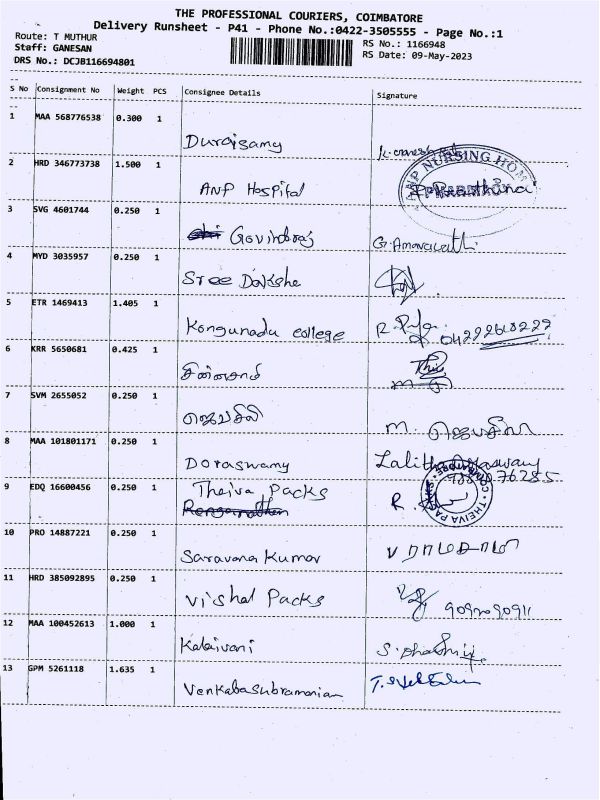 THE PROFESSIONAL COURIERS, COIMBATORE
Delivery Runsheet - P41 - Phone No.:0422-3505555 - Page No.:1
Route: T MUTHUR
RS No.: 1166948
Staff: GANESAN
RS Date: 09-May-2023
DRS No.: DCJB116694801
S No Consignment No Weight PCS Consignee Details Signature
1 MAA 568776538 0.300 1 Duraisamy
2 HRD 346773738 1.500 1 ANP Hospital ANP NURSING HOM
3 SVG 4601744 0.250 1 Govindraj G. Amaravathi
4 MYD 3035957 0.250 1 Sree Dakshe
5 ETR 1469413 1.405 1 Kongunadu college R. Puja 04222618222
6 KRR 5650681 0.425 1
7 SVM 2655052 0.250 1 M.
8 MAA 101801171 0.250 1 Doraswamy Lalitha
9 EDQ 16600456 0.250 1 Theiva Packs R. THEIVA PA COIMBATORE
10 PRO 14887221 0.250 1 Saravana Kumar
11 HRD 385092895 0.250 1 Vishal Packs
12 MAA 100452613 1.000 1 Kalaivani
13 GPM 5261118 1.635 1 Venkatasubramanian